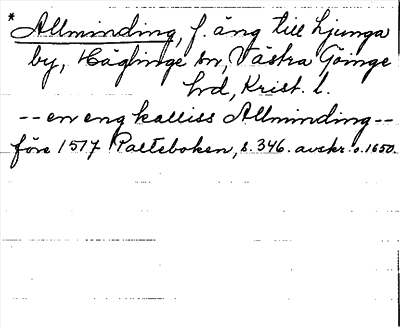 *Allminding, f. äng till Ljunga
by, Häglinge sn, Västra Göinge
hd, Krist. l.
-- en eng kalliss Allminding --
före 1517 Palteboken, s. 346. avskr. o. 1650.